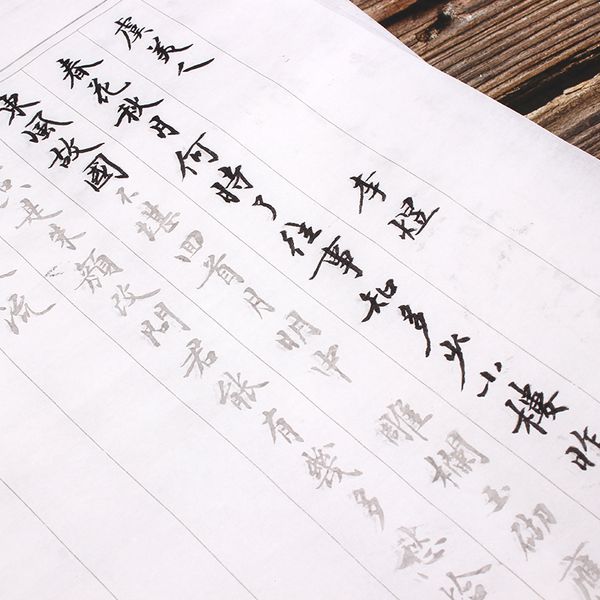 虞美人 李煜
春花秋月何時了往事知多少小樓昨
東風故國不堪回首月明中 雕欄玉砌應
只是朱顏改問君能有幾多愁恰
流